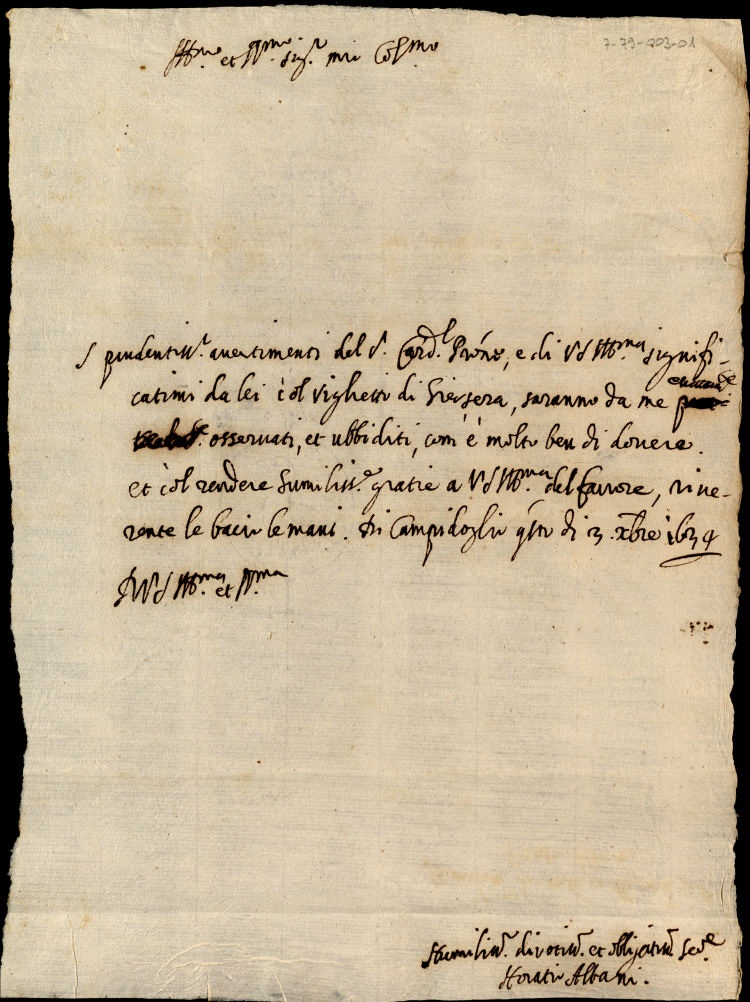 7-79-003-01
Ill.mo et R.mo Sig.r mio Col.mo
I prudentiss.i avertimenti del S. Card.l Prõne, e di VS Ill.ma signifi-
catimi da lei còl viglietto di hiersera, saranno da me
osservati, et ubbiditi, com'è molto ben di dovere.
et còl rendere humiliss.e gratie a VS Ill.ma del favore, rive-
rente le bacio le mani. Di Campidoglio q.sto di 3. Xbre 1634
D VS Ill.ma et R.ma
Humiliss.o divotiss.o et obligatiss.o Se.re
Horatio Albani.